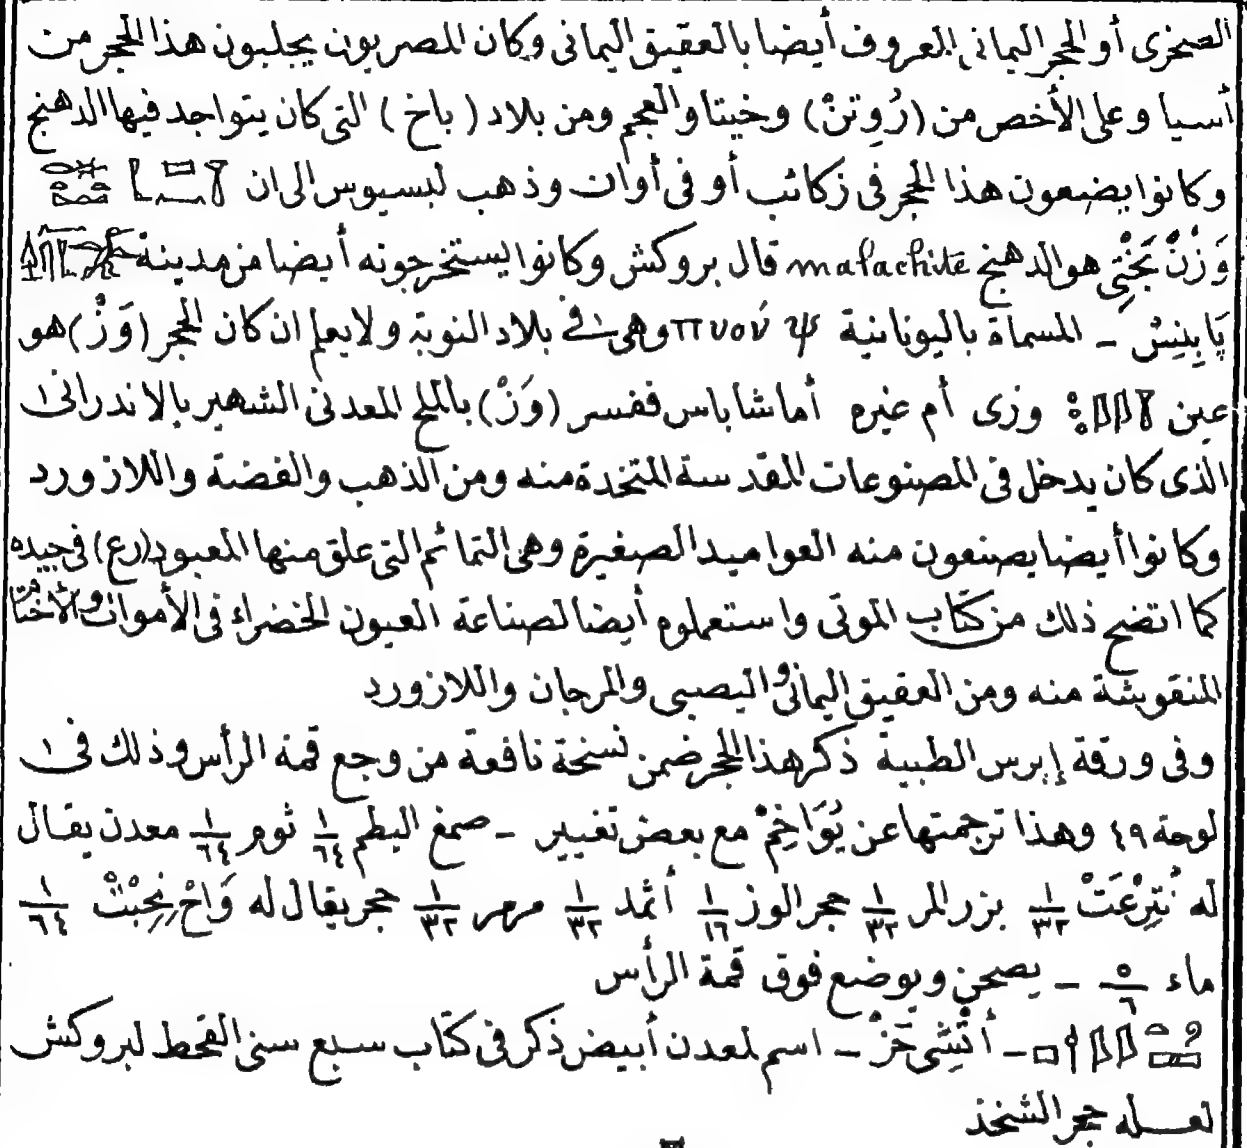 الصخرى أو الحجر اليمانى المعروف أيضا بالعقيق اليمانى وكان المصريون يجلبون هذا الحجر من
أسيا وعلى الأخص من (رُوتِنْ) وخيتا والعجم ومن بلاد (باخ) التى كان يتواجد فيها الدهنج
وكانوا يضعون هذا الحجر فى زكائب أو فى أوان وذهب لبسيوس الى ان
وَزْنْ بَخْتِى هو الدهنج malachite قال بروكش وكانوا يستخرجونه أيضا من مدينة
پَابِنِسْ - المسماة باليونانية وهى فى بلاد النوبة ولا يعلم ان كان الحجر (وَزْ) هو
عين وزى أم غيره أما شاباس ففسر (وَزْ) بالملح المعدنى الشهير بالاندرانى
الذى كان يدخل فى المصنوعات المقدسة المتخذة منه ومن الذهب والفضة واللازورد
وكانوا أيضا يصنعون منه العواميد الصغيرة وهى التمائم التى علق منها المعبود (رع) فى جيده
كما اتضح ذلك من كتاب الموتى واستعملوه أيضا لصناعة العيون الخضراء فى الأموات والأختام
المنقوشة منه ومن العقيق اليمانى واليصبى والمرجان واللازورد
وفى ورقة إبرس الطبية ذكر هذا الحجر ضمن نسخة نافعة من وجع قمة الرأس وذلك فى
لوحة ٤٩ وهذا ترجمتها عن يُوَاخِمْ مع بعض تغيير - صمغ البطم ١/٦٤ ثوم ١/٦٤ معدن يقال
له نُتِرْعَتْ ١/٣٢ بزر المر ١/٣٢ حجر الوز ١/١٦ أثمد ١/٣٢ مرهر ١/٣٢ حجر يقال له وَاحْ نِحِبْتْ ١/٦٤
ماء ٥/٦ - يصحن ويوضع فوق قمة الرأس
- أَنْشِى خَزْ - اسم لمعدن أبيض ذكر فى كتاب سبع سنى القحط لبروكش
لعله حجر الشخذ